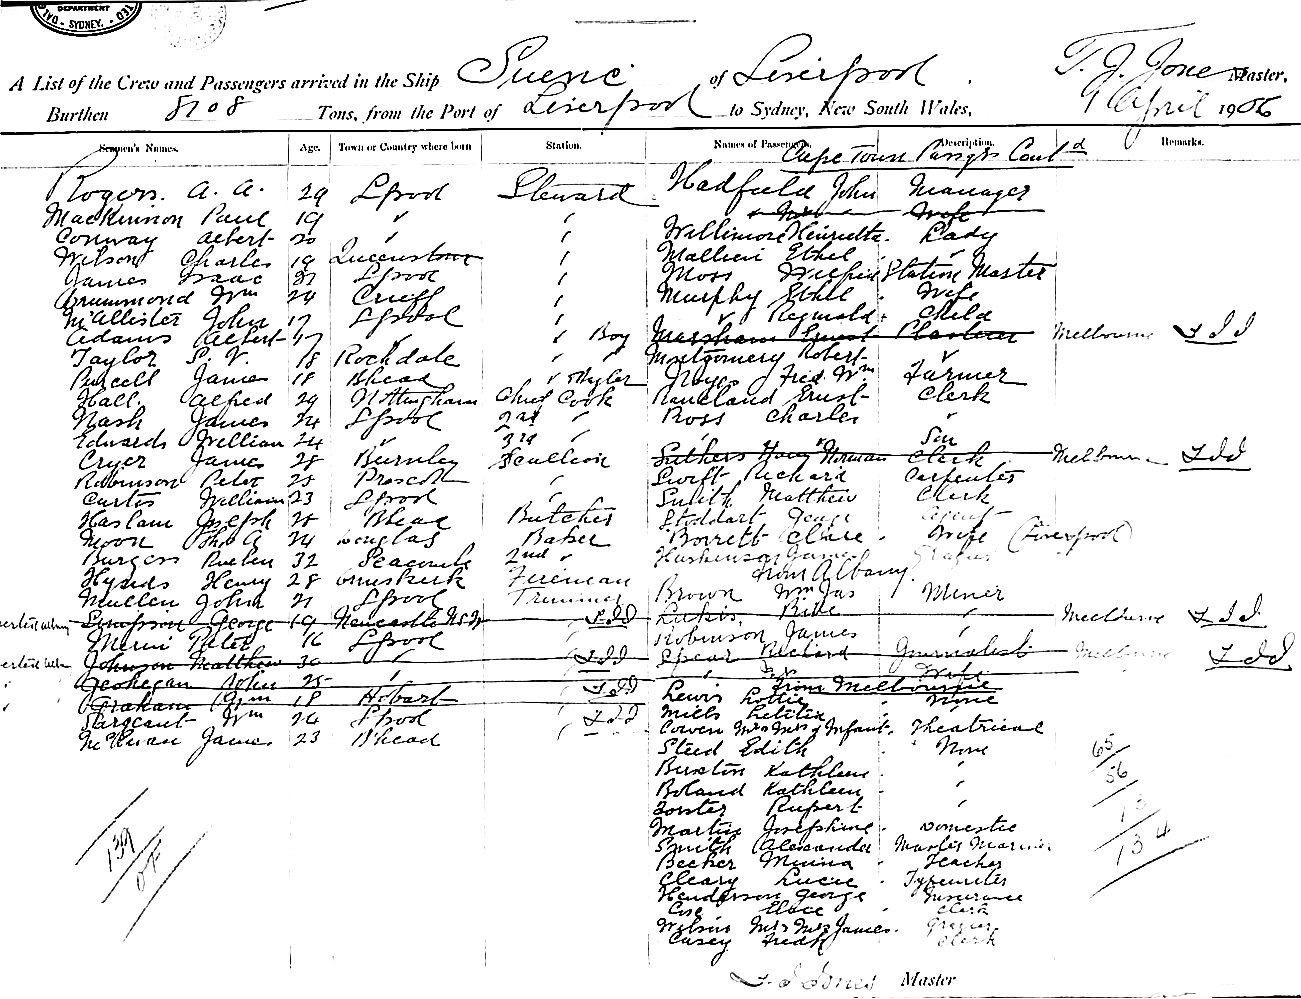 DEPARTMENT
SYDNEY.
A List of the Crew and Passengers arrived in the Ship Suevic of Liverpool. T. J. Jones Master,
Burthen 8708 Tons, from the Port of Liverpool to Sydney, New South Wales, 9 April 1906
Seamen's Names. Age. Town or Country where born Station. Names of Passengers Description. Remarks.
Cape Town Passgrs Contd
Rogers. A. A. 29 Lpool Steward Hadfield John Manager
MacKinnon Paul 19 " " " Mrs Wife
Conway Albert 20 " " Wallimore Henrietta. Lady
Wilson Charles 19 Queenstown " Ethel "
James Isaac 21 Lpool " Moss Wilfrid Station Master
Drummond Wm 29 Crieff " Murphy Ethel Wife
McAllister John 17 Lpool " " Reginald Child
Adams Albert 17 " " Boy Marsham Ernest Melbourne
Taylor S. V. 18 Rockdale " " Montgomery Robert "
Purcell James 18 Bhead " Noyes Fred Wm Farmer
Hall. Alfred 29 Nottingham Chief Cook Ernest Clerk
Nash James 24 Lpool 2nd " Ross Charles "
Edwards William 24 " 3rd " "
Cryer James 28 Burnley Scullion Suthers Harry Norman Clerk Melbourne
Robinson Peter 25 Prescott " Swift Richard Carpenter
Curtis William 23 Lpool " Smith Matthew Clerk
Haslam Joseph 25 Bhead Butcher Stoddart George Agent
Moon John A 24 Douglas Baker Borrett Clare Wife (Liverpool)
Burgess Reuben 32 Seacombe 2nd " James
Hynds Henry 28 Ormskirk Fireman From Albany.
Mullen John 21 Lpool Trimmer Brown Wm Jas Miner
Simpson George 19 Newcastle N.S.W " Melbourne
Peter 16 Lpool Robinson James "
Johnson Matthew 30 " " Spear Richard Journalist Melbourne
Geohegan John 25 " " Mrs Wife
From Melbourne
Graham Wm 18 Hobart " Lewis Lottie None
Sargeant Wm 24 Lpool " Mills Letitia "
McEwan James 23 Bhead Cowen Mr & Mrs & Infant. Theatrical
Steed Edith None
Buxton Kathleen "
Boland Kathleen "
Forster Rupert "
Martin Josephine Domestic
Smith Alexander Master Mariner
Becker Minna Teacher
Cleary Lucie Typewriter
Henderson George Insurance
Clerk
Wilson Mr & Mrs James. Grazier
Casey Fredk Clerk
65
56
13
134
139
T. J. Jones Master